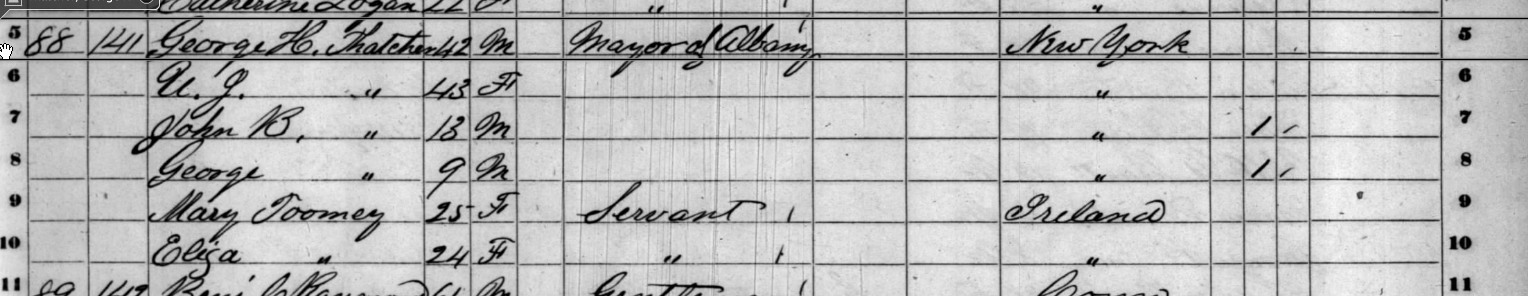 Catherine Logan 22 F " "
5 88 141 George H. Thatcher 42 M Mayor of Albany New York 5
6 U. J. " 43 F " 6
7 John B. " 13 M " 1 7
8 George " 9 M " 1 8
9 Mary Toomey 25 F Servant 1 Ireland 9
10 Eliza " 24 F " 1 " 10
11 89 142 Benj 61 M Gentle Conn 11